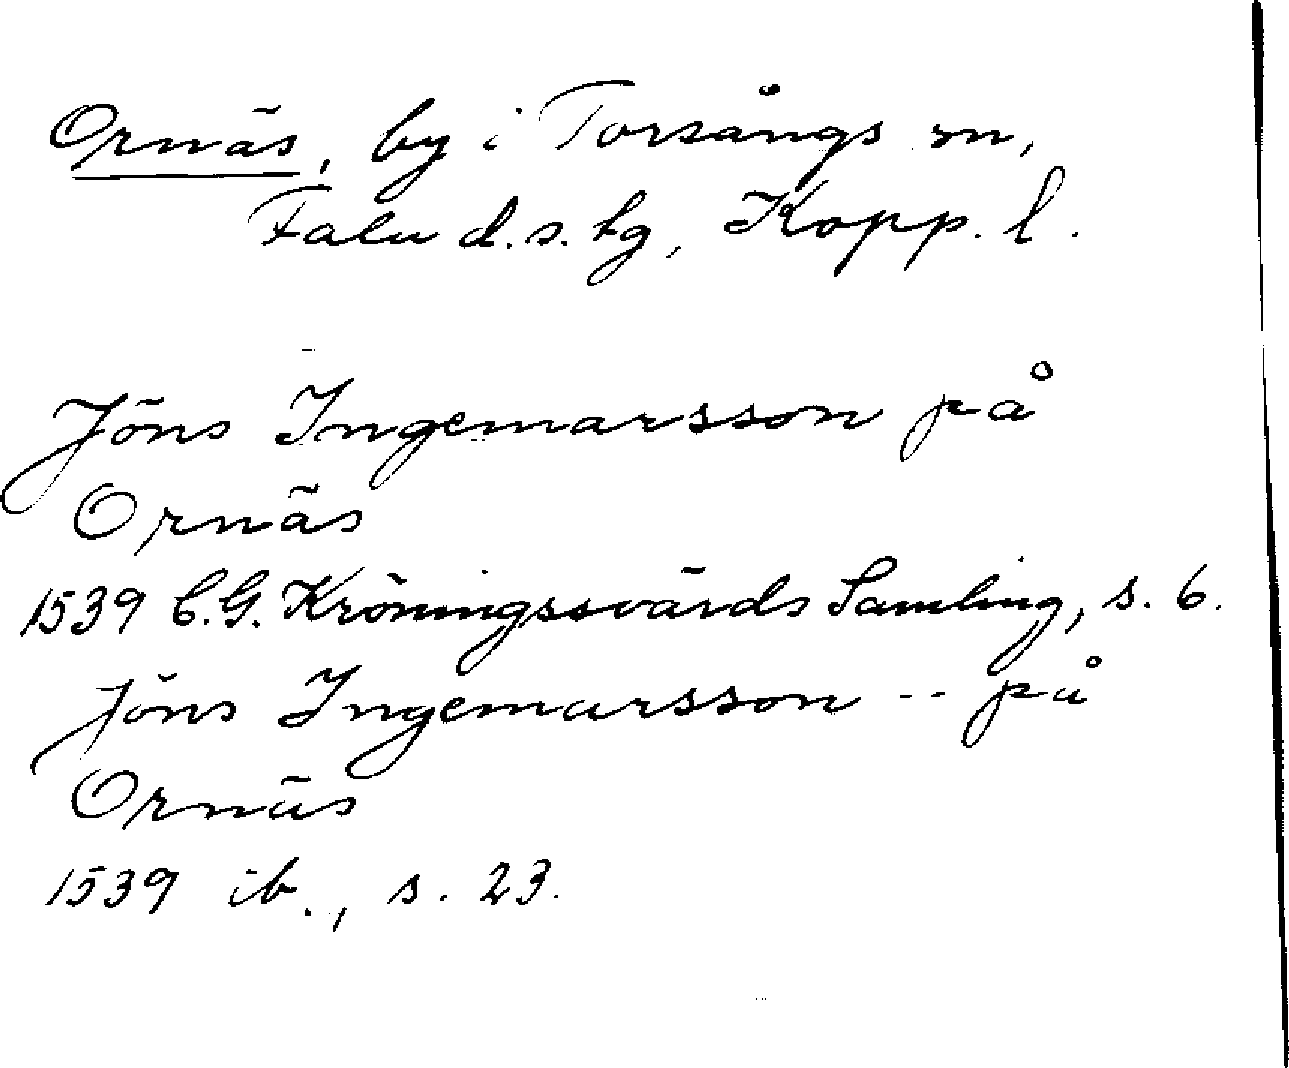 Ornäs, by i Torsångs sn,
Falu d.s. tg, Kopp. l.
Jöns Ingemarsson på
Ornäs
1539 C.G. Kröningssvärds Samling, s. 6.
Jöns Ingemarsson -- på
Ornäs
1539 ib., s. 23.